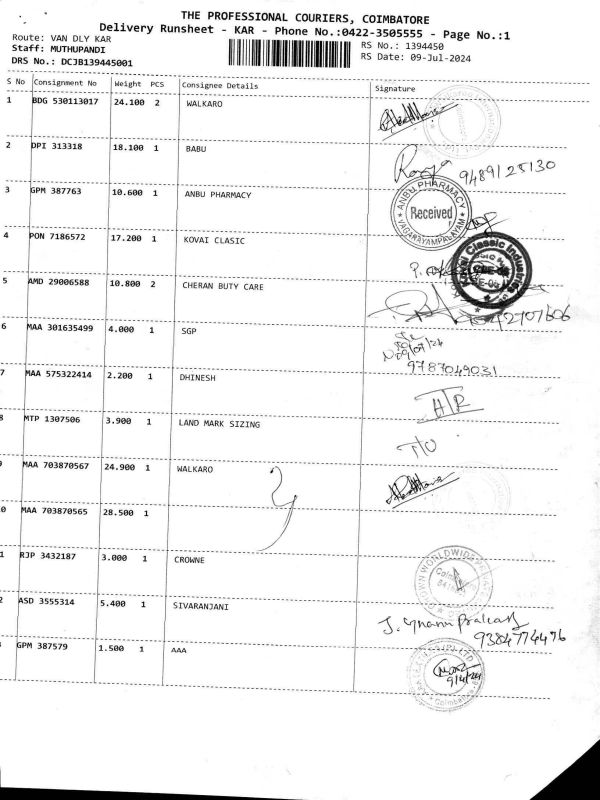 THE PROFESSIONAL COURIERS, COIMBATORE
Delivery Runsheet - KAR - Phone No.:0422-3505555 - Page No.:1
Route: VAN DLY KAR
Staff: MUTHUPANDI
DRS No.: DCJB139445001
RS No.: 1394450
RS Date: 09-Jul-2024
S No Consignment No Weight PCS Consignee Details Signature
1 BDG 530113017 24.100 2 WALKARO
2 DPI 313318 18.100 1 BABU
9489128130
3 GPM 387763 10.600 1 ANBU PHARMACY
ANBU PHARMACY
Received
4 PON 7186572 17.200 1 KOVAI CLASIC
Kovai Classic Industries
5 AMD 29006588 10.800 2 CHERAN BUTY CARE
6 MAA 301635499 4.000 1 SGP
09/07/24
9787049031
7 MAA 575322414 2.200 1 DHINESH
A/R
8 MTP 1307506 3.900 1 LAND MARK SIZING
T/O
9 MAA 703870567 24.900 1 WALKARO
0 MAA 703870565 28.500 1
1 RJP 3432187 3.000 1 CROWNE
2 ASD 3555314 5.400 1 SIVARANJANI
9384774496
GPM 387579 1.500 1 AAA